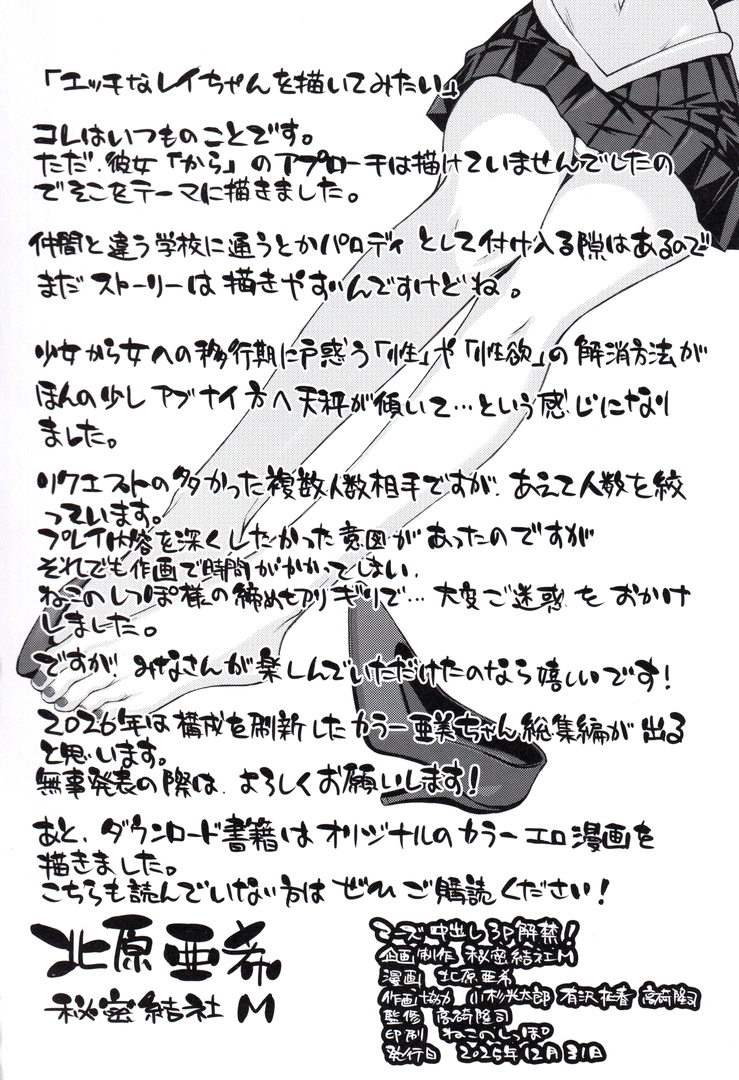 「エッチなレイちゃんを描いてみたい」
コレはいつものことです。
ただ、彼女「から」のアプローチは描けていませんでしたの
でそこをテーマに描きました。
仲間と違う学校に通うとかパロディとして付け入る隙はあるので
まだストーリーは描きやすいんですけどね。
少女から女への移行期に戸惑う「性」や「性欲」の解消方法が
ほんの少しアブナイ方へ天秤が傾いて…という感じになり
ました。
リクエストの多かった複数人数相手ですが、あえて人数を絞
っています。
プレイ内容を深くしたかった意図があったのですが
それでも作画で時間がかかってしまい、
ねこのしっぽ様の締めもギリギリで…大変ご迷惑をおかけ
しました。
ですが、みなさんが楽しんでいただけたのなら嬉しいです!
2026年は構成を刷新したカラー亜美ちゃん総集編が出る
と思います。
無事発表の際は、よろしくお願いします!
あと、ダウンロード書籍はオリジナルのカラーエロ漫画を
描きました。
こちらも読んでいない方はぜひご購読ください!
北原亜希
秘密結社M
マーズ中出し3P解禁!
企画制作 秘密結社M
漫画 北原亜希
作画協力 小杉光太郎 有沢桂春 高崎隆司
監修 高崎隆司
印刷 ねこのしっぽ
発行日 2025年12月31日